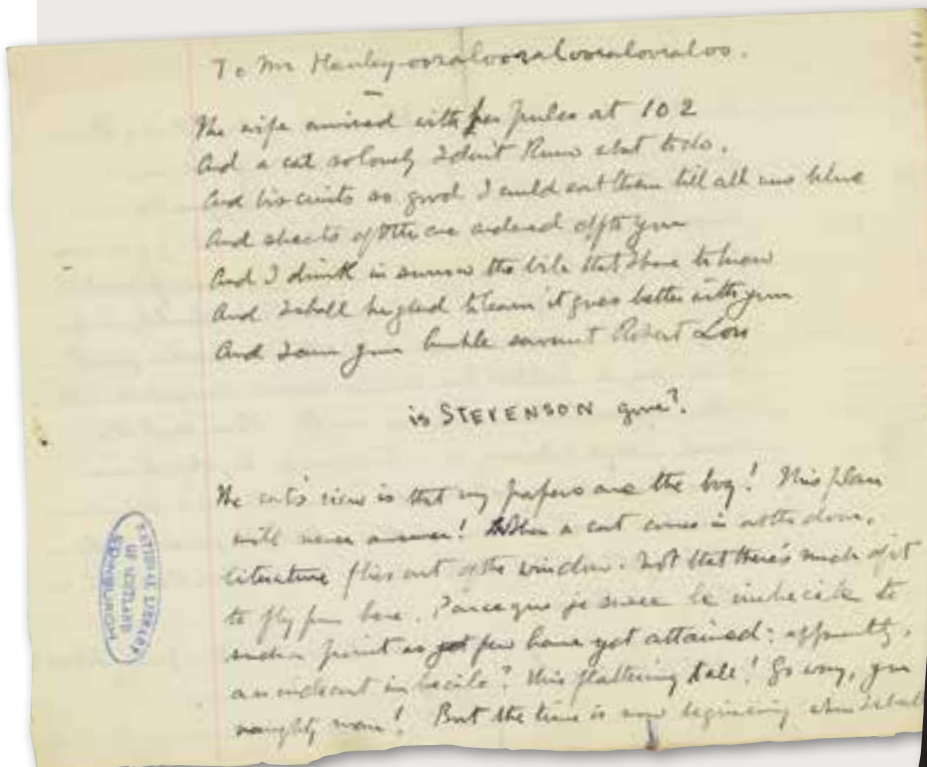 To Mr Henley-ooralooralooralooraloo.
The wife arrived with her pulse at 102
And a cat so lovely I don't know what to do,
And biscuits so good I could eat them till all was blue
And sheets of Otto are ordered off to you
And I drink in sorrow the bile that I have to brew
And I shall be glad to learn it goes better with you
And I am your humble servant Robert Lou
is STEVENSON gone?
The cat's view is that my papers are the bog! This plan
will never answer! When a cat comes in at the door,
literature flies out of the window. Not that there's much of it
to fly from here. Parceque je suis le imbecile to
such a point as few have yet attained: apparently,
an imbecile? this flattering tale! Go way, you
naughty man! But the time is now beginning when I shall
NATIONAL LIBRARY
OF SCOTLAND
EDINBURGH